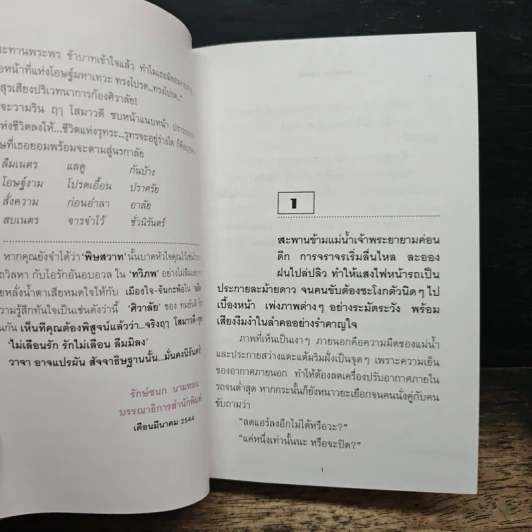 ะทานพระพร ข้าบาทเข้าใจแล้ว ทำไมเธอ
อหน้าที่แห่งโอษฐ์มหาเทวะ ทรงโปรด...ทรงโปรด..."
สุรเสียงปริเวทนาการก้องศิวาลัย!
จะวามริน ฤๅ โสมาวดี ซบหน้าแนบหน้า
ห่งชีวิตลงให้...ชีวิตแห่งรุทระ...รุทรจะอยู่ร่างใด
ษที่เธอยอมพร้อมจะตามสู่นรกาลัย
ลืมเนตร แลดู กันบ้าง
โอษฐ์งาม โปรดเอื้อน ปราศรัย
สั่งความ ก่อนอำลา อาลัย
สบเนตร จารจำไว้ ชั่วนิรันดร์
หากคุณยังจำได้ว่า 'พิษสวาท' นั้นบาดหัวใจคุณไว้
ถวิลหา กับไอรักอันอบอวล ใน 'ทวิภพ' อย่าง
ยหลั่งน้ำตาเสียหมดใจให้กับ เมืองใจ-จันกะพ้อใน
ความรู้สึกทันใจเป็นเช่นดังว่านี้ 'ศิวาลัย' ของ
นกัน เห็นทีคุณต้องพิสูจน์แล้วว่า...จริงฤๅ โสมาวดี
'ไม่เลือนรัก รักไม่เลือน ลืมมิลง'
วาจา อาจแปรผัน สัจจาธิษฐานนั้น...มั่นคงนิรันดร์
รักษ์ชนก นามทอน
บรรณาธิการสำนักพิมพ์
เดือนมีนาคม 2544
1
สะพานข้ามแม่น้ำเจ้าพระยายามค่อน
ดึก การจราจรเริ่มลื่นไหล ละออง
ฝนโปลปลิว ทำให้แสงไฟหน้ารถเป็น
ประกายละม้ายดาว จนคนขับต้องชะโงกตัวนิดๆ ไป
เบื้องหน้า เพ่งภาพต่างๆ อย่างระมัดระวัง พร้อม
เสียงงึมงำในลำคออย่างรำคาญใจ
ภาพที่เห็นเป็นเงาๆ ภายนอกคือความมืดของแม่น้ำ
และประกายสว่างแตะแต้มริมฝั่งเป็นจุดๆ เพราะความเย็น
ของอากาศภายนอก ทำให้ต้องลดเครื่องปรับอากาศภายใน
รถจนต่ำสุด หากกระนั้นก็ยังหนาวยะเยือกจนคนนั่งคู่กับคน
ขับถามว่า
"ลดแอร์ลงอีกไม่ได้หรือวะ?"
"แค่หนึ่งเท่านั้นนะ หรือจะปิด?"
1